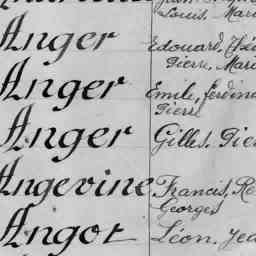 Louis, Mari
Anger Edouard,
Pierre, Mari
Anger Emile, Ferdina
Pierre
Anger Gilles, Pie
Angevine Francis, Re
Georges
Angot Léon, Jea